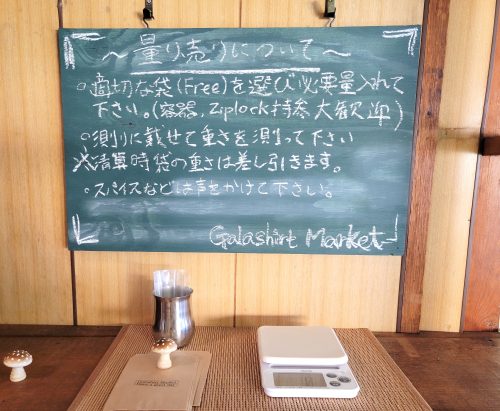 ～量り売りについて～
○適切な袋(Free)を選び必要量入れて
下さい。(容器、Ziplock持参大歓迎)
○測りに載せて重さを測って下さい
※清算時袋の重さは差し引きます。
○スパイスなどは声をかけて下さい。
Galashirt Market